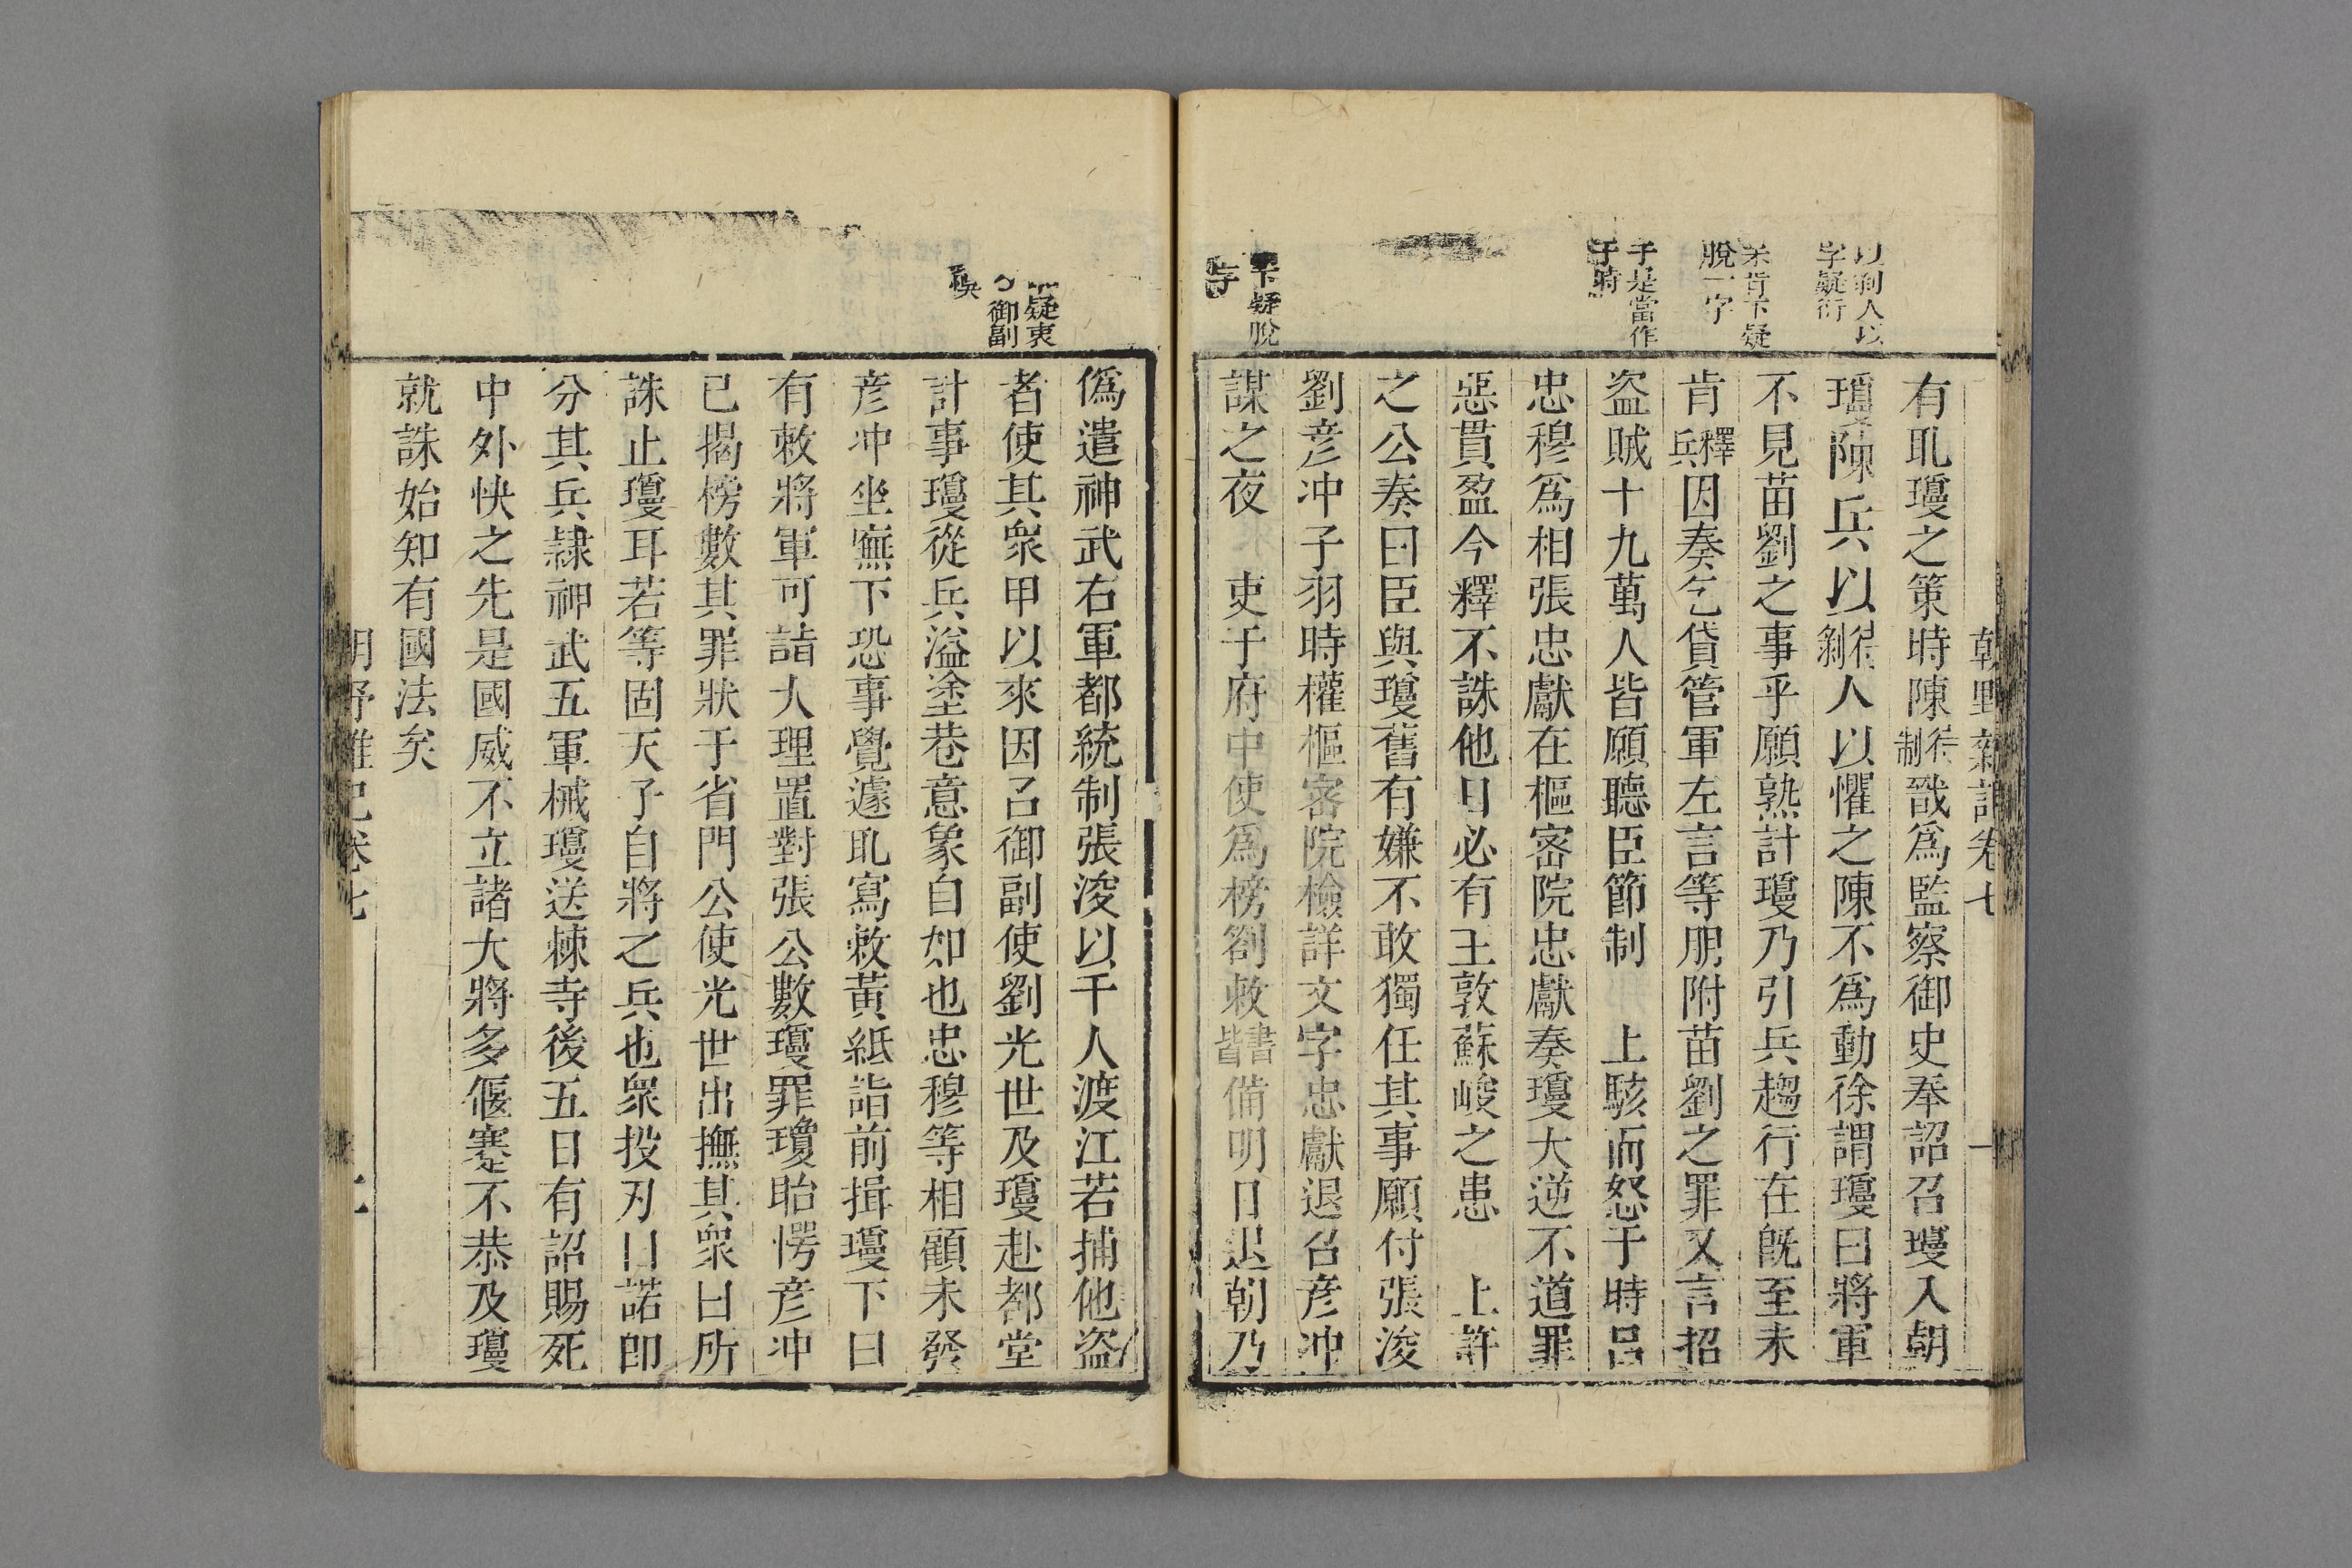 朝野雜記卷七
一
以剃人以
字疑衍
未肯下疑
脫一字
于是當作
于時
下疑脫
字
有耴瓊之策時陳待制戩爲監察御史奉詔召瓊入朝
瓊陳兵以待剃人以懼之陳不爲動徐謂瓊曰將軍
不見苗劉之事乎願熟計瓊乃引兵趨行在旣至未
肯釋兵因奏乞貸管軍左言等朋附苗劉之罪又言招
盜賊十九萬人皆願聽臣節制 上駭而怒于時呂
忠穆爲相張忠獻在樞密院忠獻奏瓊大逆不道罪
惡貫盈今釋不誅他日必有王敦蘇峻之患 上許
之公奏曰臣與瓊舊有嫌不敢獨任其事願付張浚
劉彦冲子羽時權樞密院檢詳文字忠獻退召彦冲
謀之夜 吏于府中使爲榜劄敕書皆備明日退朝乃
疑衷
御副
僞遣神武右軍都統制張浚以千人渡江若捕他盜
者使其衆甲以來因召御副使劉光世及瓊赴都堂
計事瓊從兵溢塗巷意象自如也忠穆等相顧未發
彦冲坐廡下恐事覺遽耴寫敕黃紙詣前揖瓊下曰
有敕將軍可詣大理置對張公數瓊罪瓊眙愕彦冲
已揭榜數其罪狀于省門公使光世出撫其衆曰所
誅止瓊耳若等固天子自將之兵也衆投刃曰諾卽
分其兵隷神武五軍械瓊送棘寺後五日有詔賜死
中外快之先是國威不立諸大將多偃蹇不恭及瓊
就誅始知有國法矣
朝野雜記卷七
二